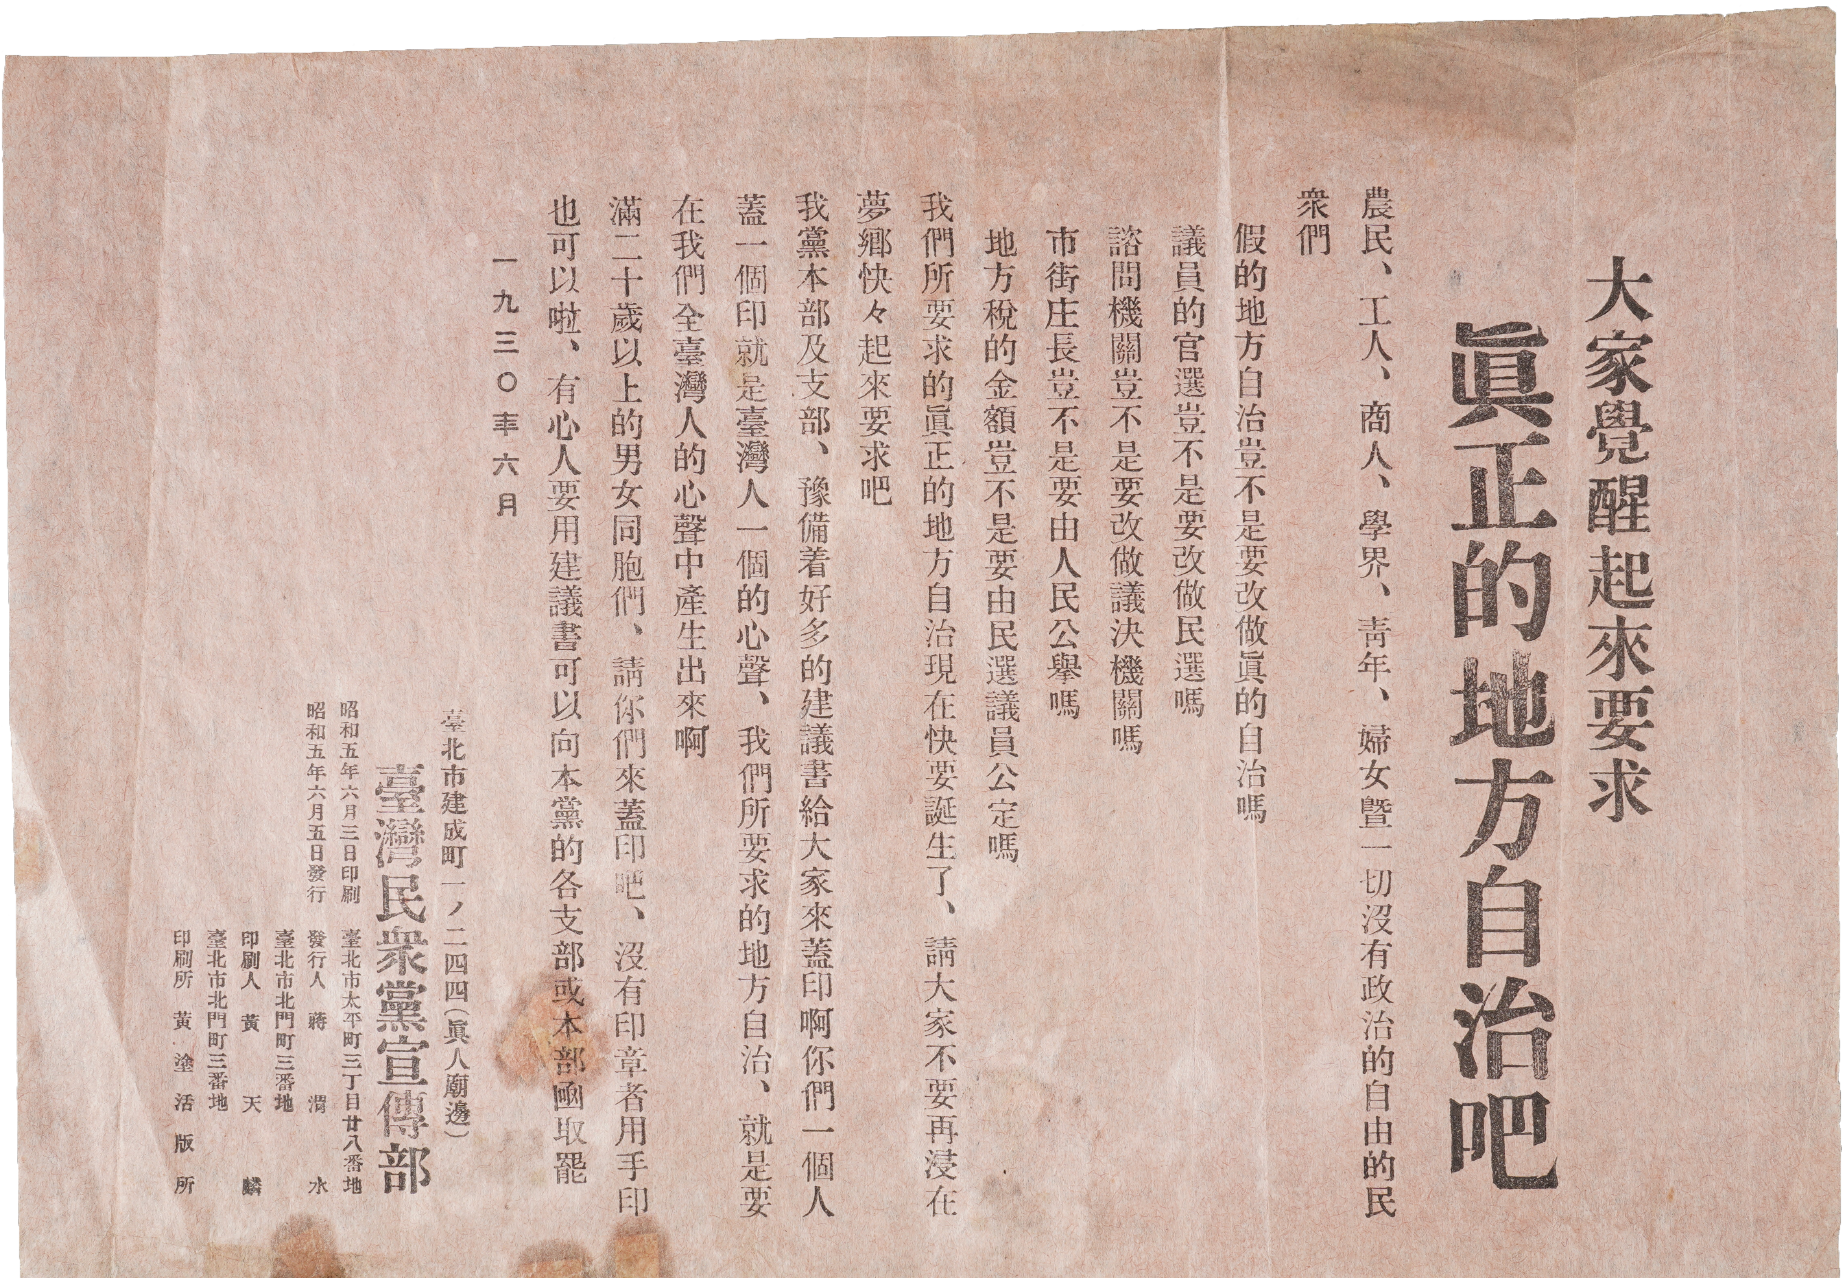 大家覺醒起來要求
眞正的地方自治吧
農民、工人、商人、學界、靑年、婦女曁一切沒有政治的自由的民
衆們
假的地方自治豈不是要改做眞的自治嗎
議員的官選豈不是要改做民選嗎
諮問機關豈不是要改做議決機關嗎
市街庄長豈不是要由人民公擧嗎
地方稅的金額豈不是要由民選議員公定嗎
我們所要求的眞正的地方自治現在快要誕生了、請大家不要再浸在
夢鄉快々起來要求吧
我黨本部及支部、豫備着好多的建議書給大家來蓋印啊你們一個人
蓋一個印就是臺灣人一個的心聲、我們所要求的地方自治、就是要
在我們全臺灣人的心聲中產生出來啊
滿二十歲以上的男女同胞們、請你們來蓋印吧、沒有印章者用手印
也可以啦、有心人要用建議書可以向本黨的各支部或本部凾取罷
一九三〇年六月
臺北市建成町一ノ二四四(眞人廟邊)
臺灣民衆黨宣傳部
昭和五年六月三日印刷 臺北市太平町三丁目廿八番地
昭和五年六月五日發行 發行人 蔣渭水
臺北市北門町三番地
印刷人 黃天麟
臺北市北門町三番地
印刷所 黃塗活版所